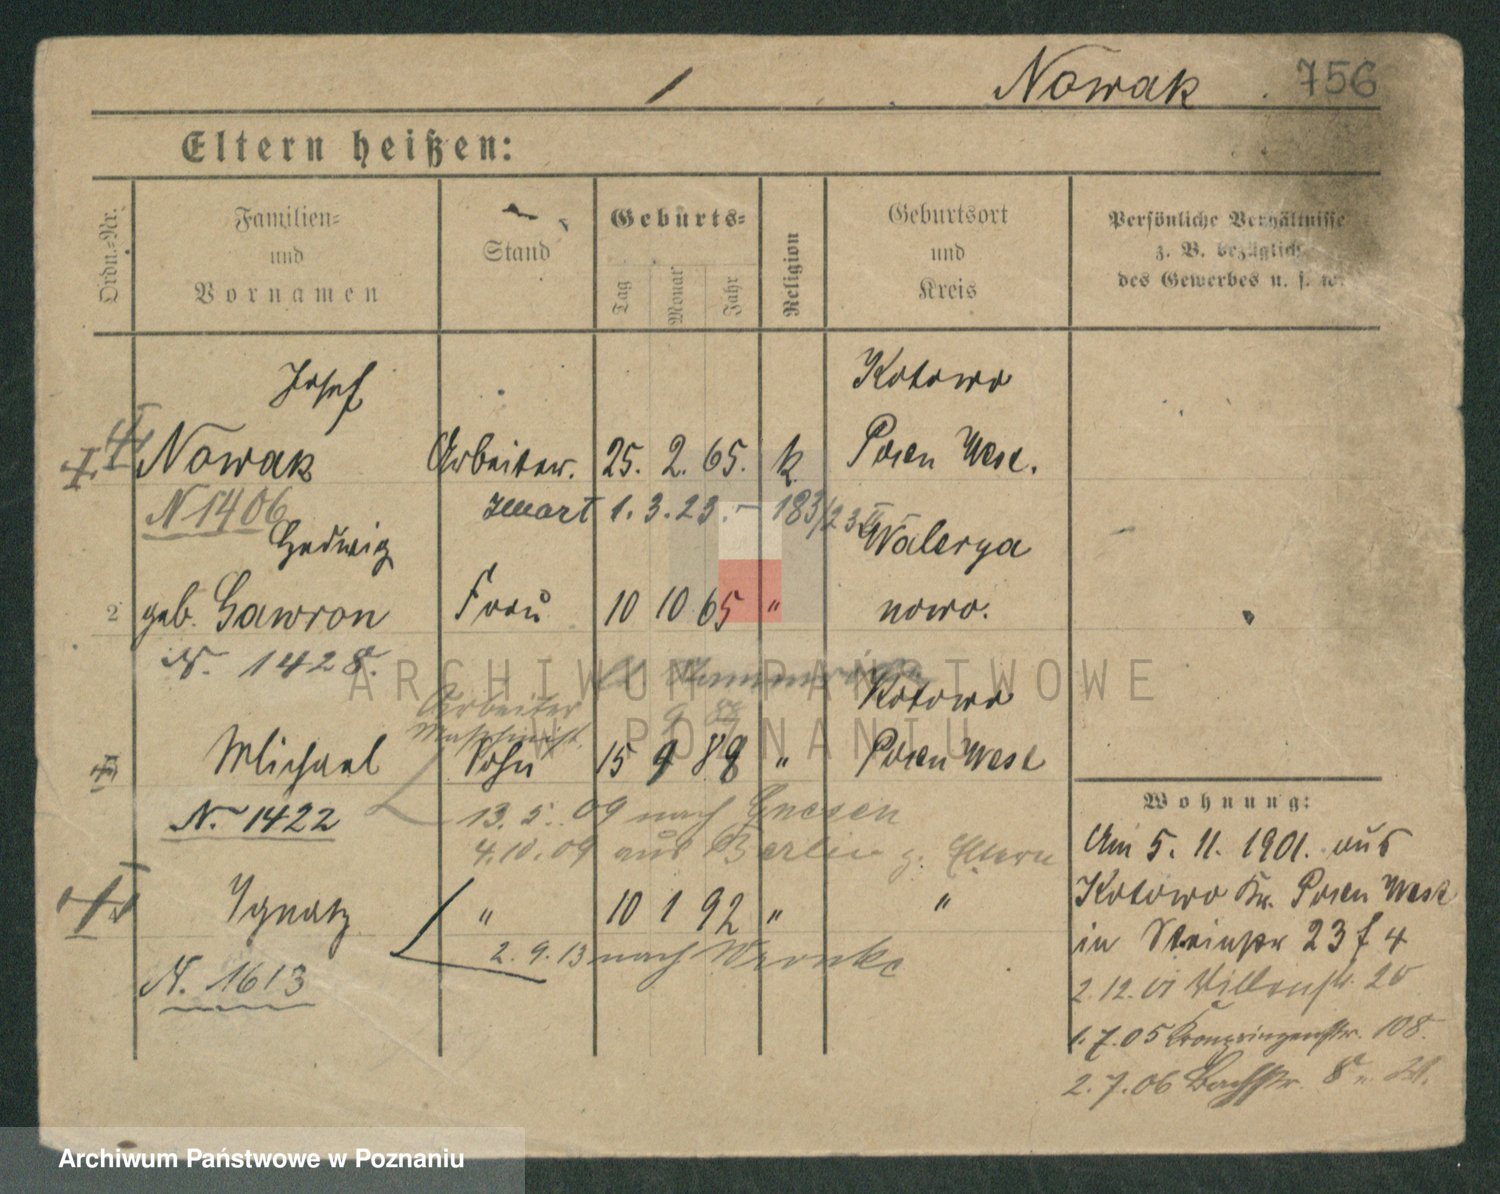 Nowak 756
Eltern heißen:
Ordn.-Nr.
Familien-
und
Vornamen
Stand
Geburts-
Tag Monat Jahr
Religion
Geburtsort
und
Kreis
Persönliche Verhältnisse
z. B. bezüglich
des Gewerbes u. s. w.
Josef Kotowo
Nowak Arbeiter. 25. 2. 65. k Posen West.
N 1406 zmart 1. 3. 23. - 183/23
Hedwig Walerya
2 geb. Gawron Frau 10 10 65 " nowo.
N. 1428.
Arbeiter Kotowo
9 88
Michael Sohn 15 9 88 " Posen West
N. 1422 13. 5. 09 nach Gnesen
4.10.09 aus Berlin z. Eltern
Ignatz " 10 1 92 " "
2. 9. 13 nach Wronke
N. 1613
Wohnung:
Am 5. 11. 1901. aus
Kotowo Kr. Posen West
in Steinstr 23 f 4
2.12.01 20
1.7.05 Kronprinzenstr. 108.
2.7.06 Bachstr. 8
ARCHIWUM PAŃSTWOWE
W POZNANIU
Archiwum Państwowe w Poznaniu